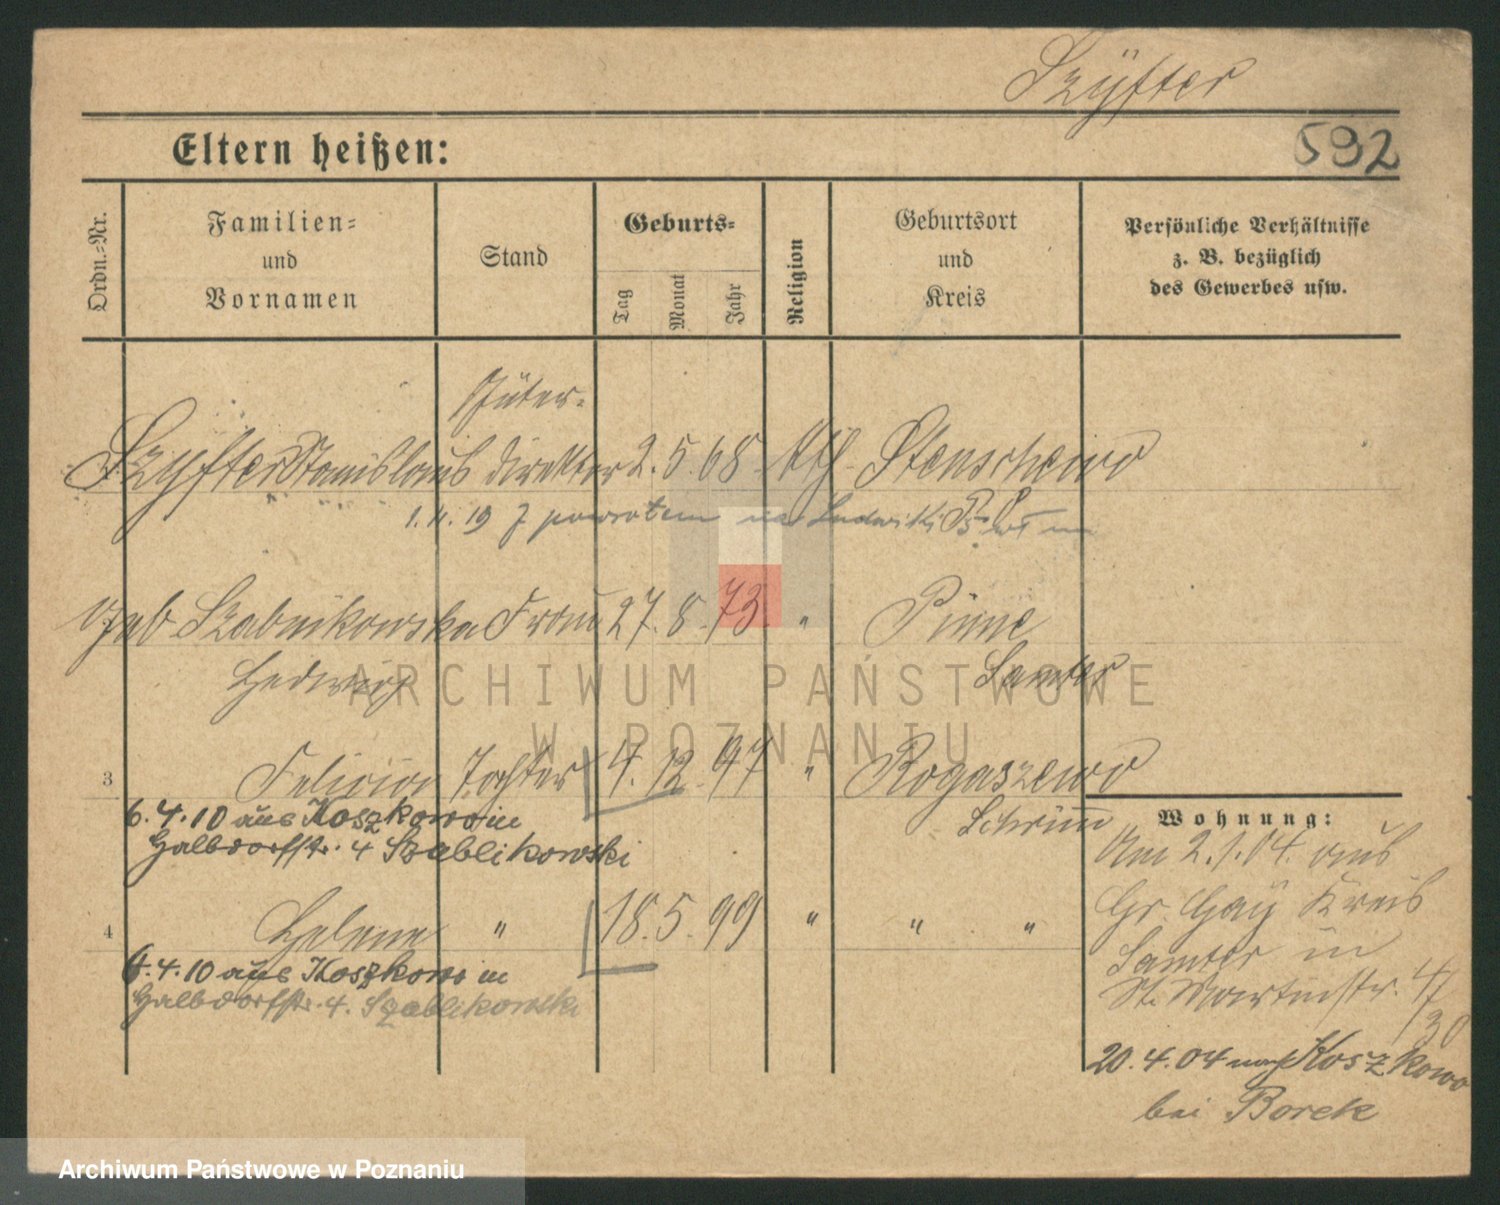 Szÿfter
592
Eltern heißen:
Ordn.-Nr.
Familien- und Vornamen
Stand
Geburts-
Tag
Monat
Jahr
Religion
Geburtsort und Kreis
Persönliche Verhältnisse z. B. bezüglich des Gewerbes usw.
Güter-
Szyfter Stanislaus direktor 2. 5. 68 kth Stenschewo
1. 4. 19 z powrotem na Ludwiki
geb Szabnikowska Frau 27. 8. 73. " Pinne
Hedwig Samter
3 Felicia Tochter 4. 12. 97 " Rogaszewo
Schrim
6.4.10 aus Koszkowo in
Halbdorfstr. 4 Szablikowski
4 Helene " 18. 5. 99 " " "
6.4.10 aus Koszkowo in
Halbdorfstr. 4. Szablikowski
Wohnung:
Am 2.1.04. aus
Gr. Gay Kreis
Samter in
St. Martinstr. 4/
30
20.4.04 nach Koszkowo
bei Borek
ARCHIWUM PAŃSTWOWE
W POZNANIU
Archiwum Państwowe w Poznaniu